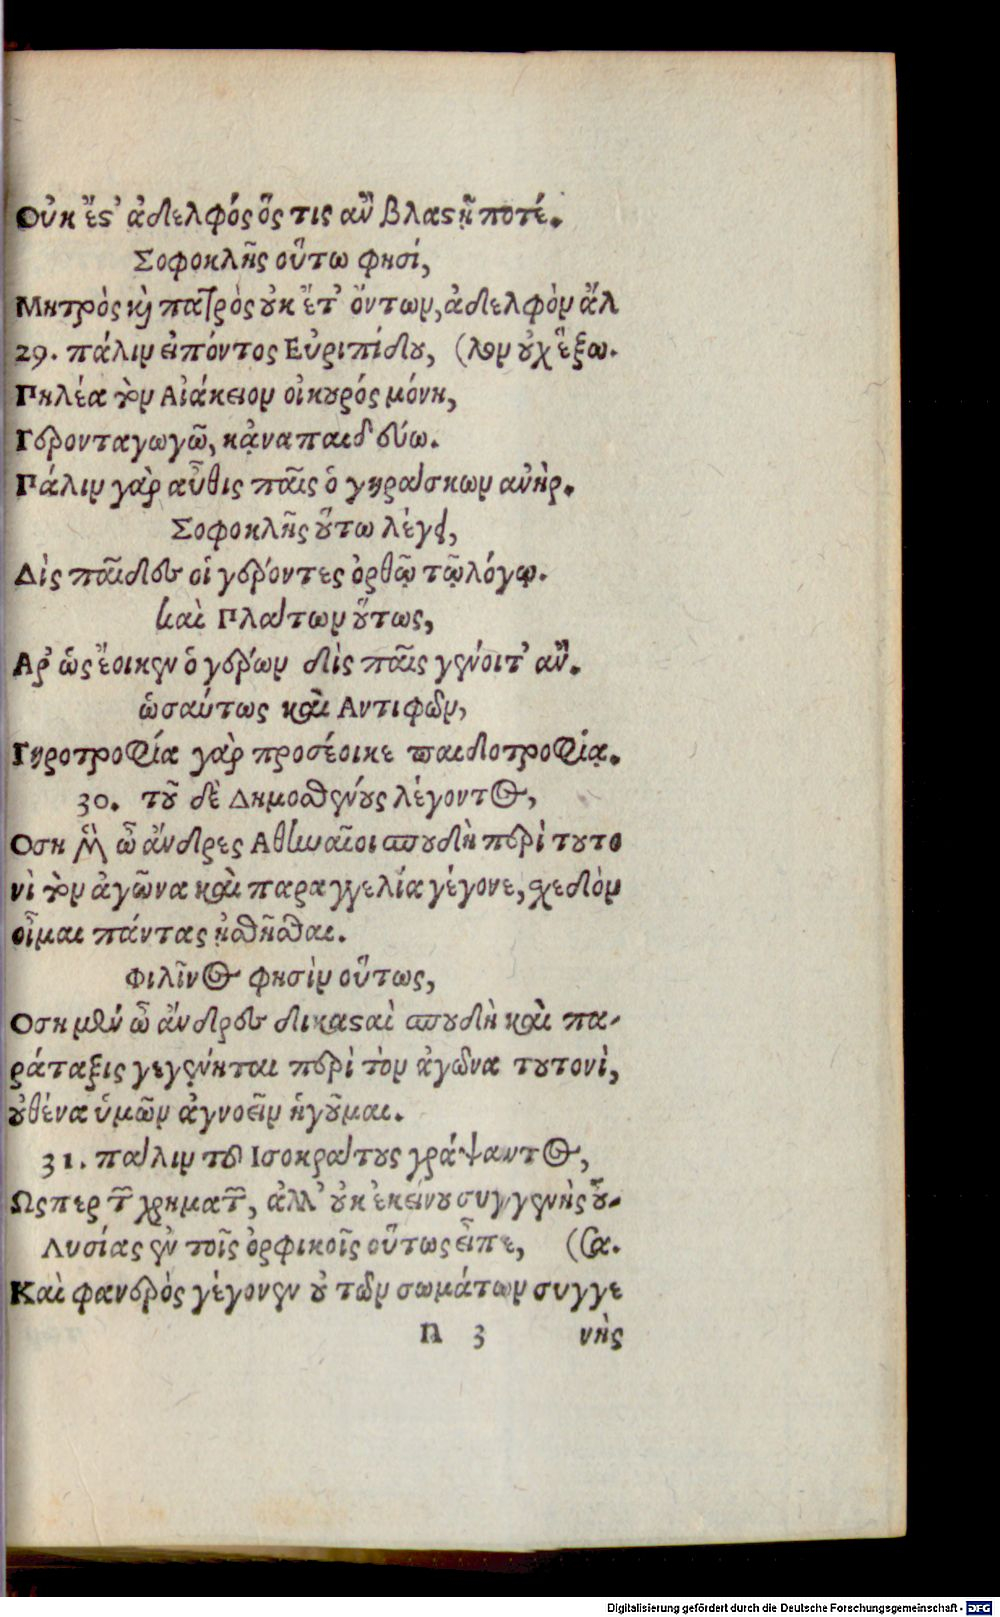 Οὐκ ἔστ' ἀδελφός ὅς τις ἂν βλαστῇ ποτέ.
Σοφοκλῆς οὕτω φησί,
Μητρὸς καὶ πατρὸς οὐκ ἔτ' ὄντων, ἀδελφὸν ἄλ
29. πάλιν εἰπόντος Εὐριπίδου, (λον οὐχ ἕξω.
Πηλέα τὸν Αἰάκειον οἰκουρός μόνη,
Γερονταγωγῶ, κᾀναπαιδεύω.
Πάλιν γὰρ αὖθις παῖς ὁ γηράσκων ανὴρ.
Σοφοκλῆς οὕτω λέγει,
Δὶς παῖδες οἱ γέροντες ὀρθῷ τῷ λόγῳ.
καὶ Πλάτων οὕτως,
Αρ' ὡς ἔοικεν ὁ γέρων δὶς παῖς γένοιτ' ἂν.
ὡσαύτως καὶ Αντιφῶν,
Γηροτροφία γὰρ προσέοικε παιδοτροφίᾳ.
30. τοῦ δὲ Δημοσθένους λέγοντος,
Οση μὲν ὦ ἄνδρες Αθηναῖοι σπουδὴ περὶ τουτο
νὶ τὸν ἀγῶνα καὶ παραγγελία γέγονε, σχεδὸν
οἶμαι πάντας ᾐσθῆσθαι.
Φιλῖνος φησὶν οὕτως,
Οση μὲν ὦ ἄνδρες δικασταὶ σπουδὴ καὶ πα-
ράταξις γεγένηται περὶ τὸν ἀγῶνα τουτονὶ,
οὐθένα ὑμῶν ἀγνοεῖν ἡγοῦμαι.
31. πάλιν τοῦ Ισοκράτους γράψαντος,
Ωςπερ τῶν χρημάτων, ἀλλ' οὐκ ἐκείνου συγγενὴς οὖ-
Λυσίας ἐν τοῖς ὀρφικοῖς οὕτως εἶπε, (σα.
Καὶ φανερὸς γέγονεν οὐ τῶν σωμάτων συγγε
n 3 νὴς
Digitalisierung gefördert durch die Deutsche Forschungsgemeinschaft - DFG